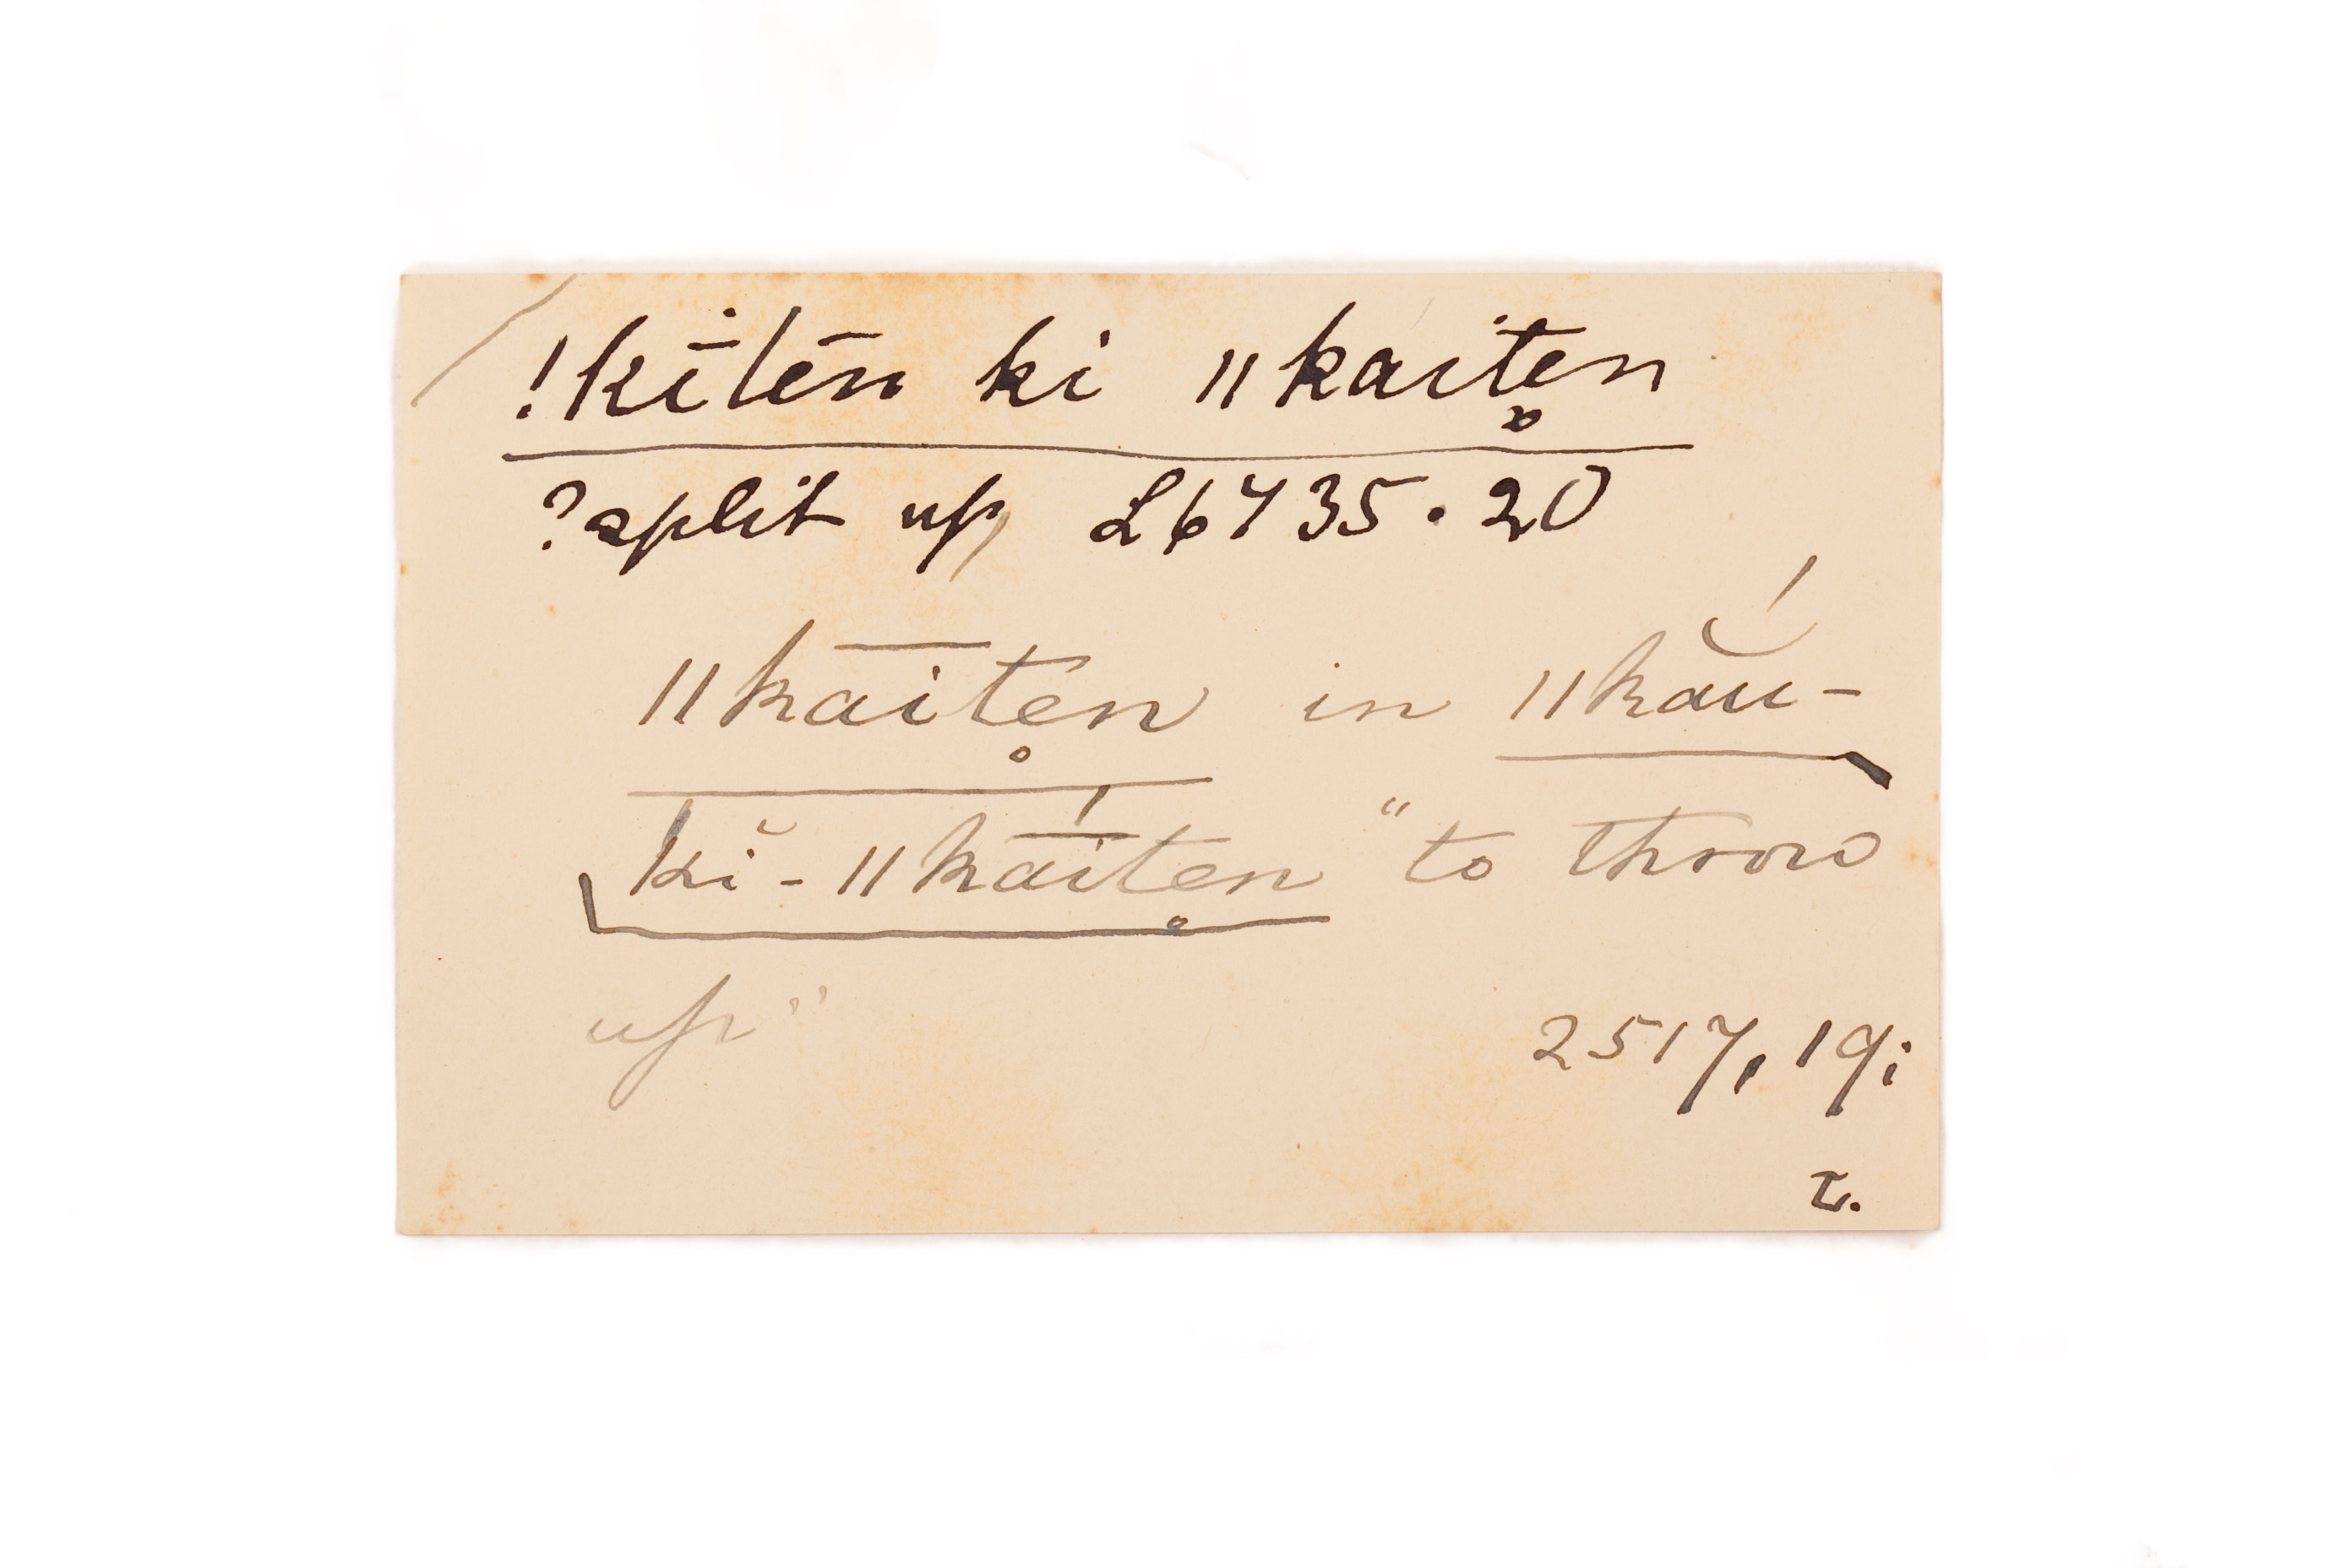 !kītēn ki ǁkaitẹn
?split up L6735·20
ǁkaitẹn in ǁkău-
kĭ-ǁkaitẹn "to throw
up"
2517, 19;